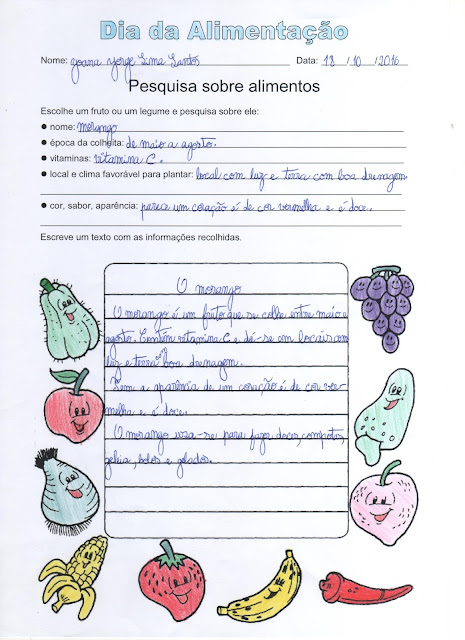 Dia da Alimentação
Nome: Joana Jorge Lima Santos Data: 18 /10 /2016
Pesquisa sobre alimentos
Escolhe um fruto ou um legume e pesquisa sobre ele:
● nome: morango
● época da colheita: de maio a agosto.
● vitaminas: vitamina C.
● local e clima favorável para plantar: local com luz e terra com boa drenagem
● cor, sabor, aparência: parece um coração é de cor vermelha e é doce.
Escreve um texto com as informações recolhidas.
O morango
O morango é um fruto que se colhe entre maio e
agosto. Contém vitamina C e dá-se em locais com
luz e terra com boa drenagem.
Tem a aparência de um coração é de cor ver-
melha e é doce.
O morango usa-se para fazer doces, compotas,
geleia, bolos e gelados.